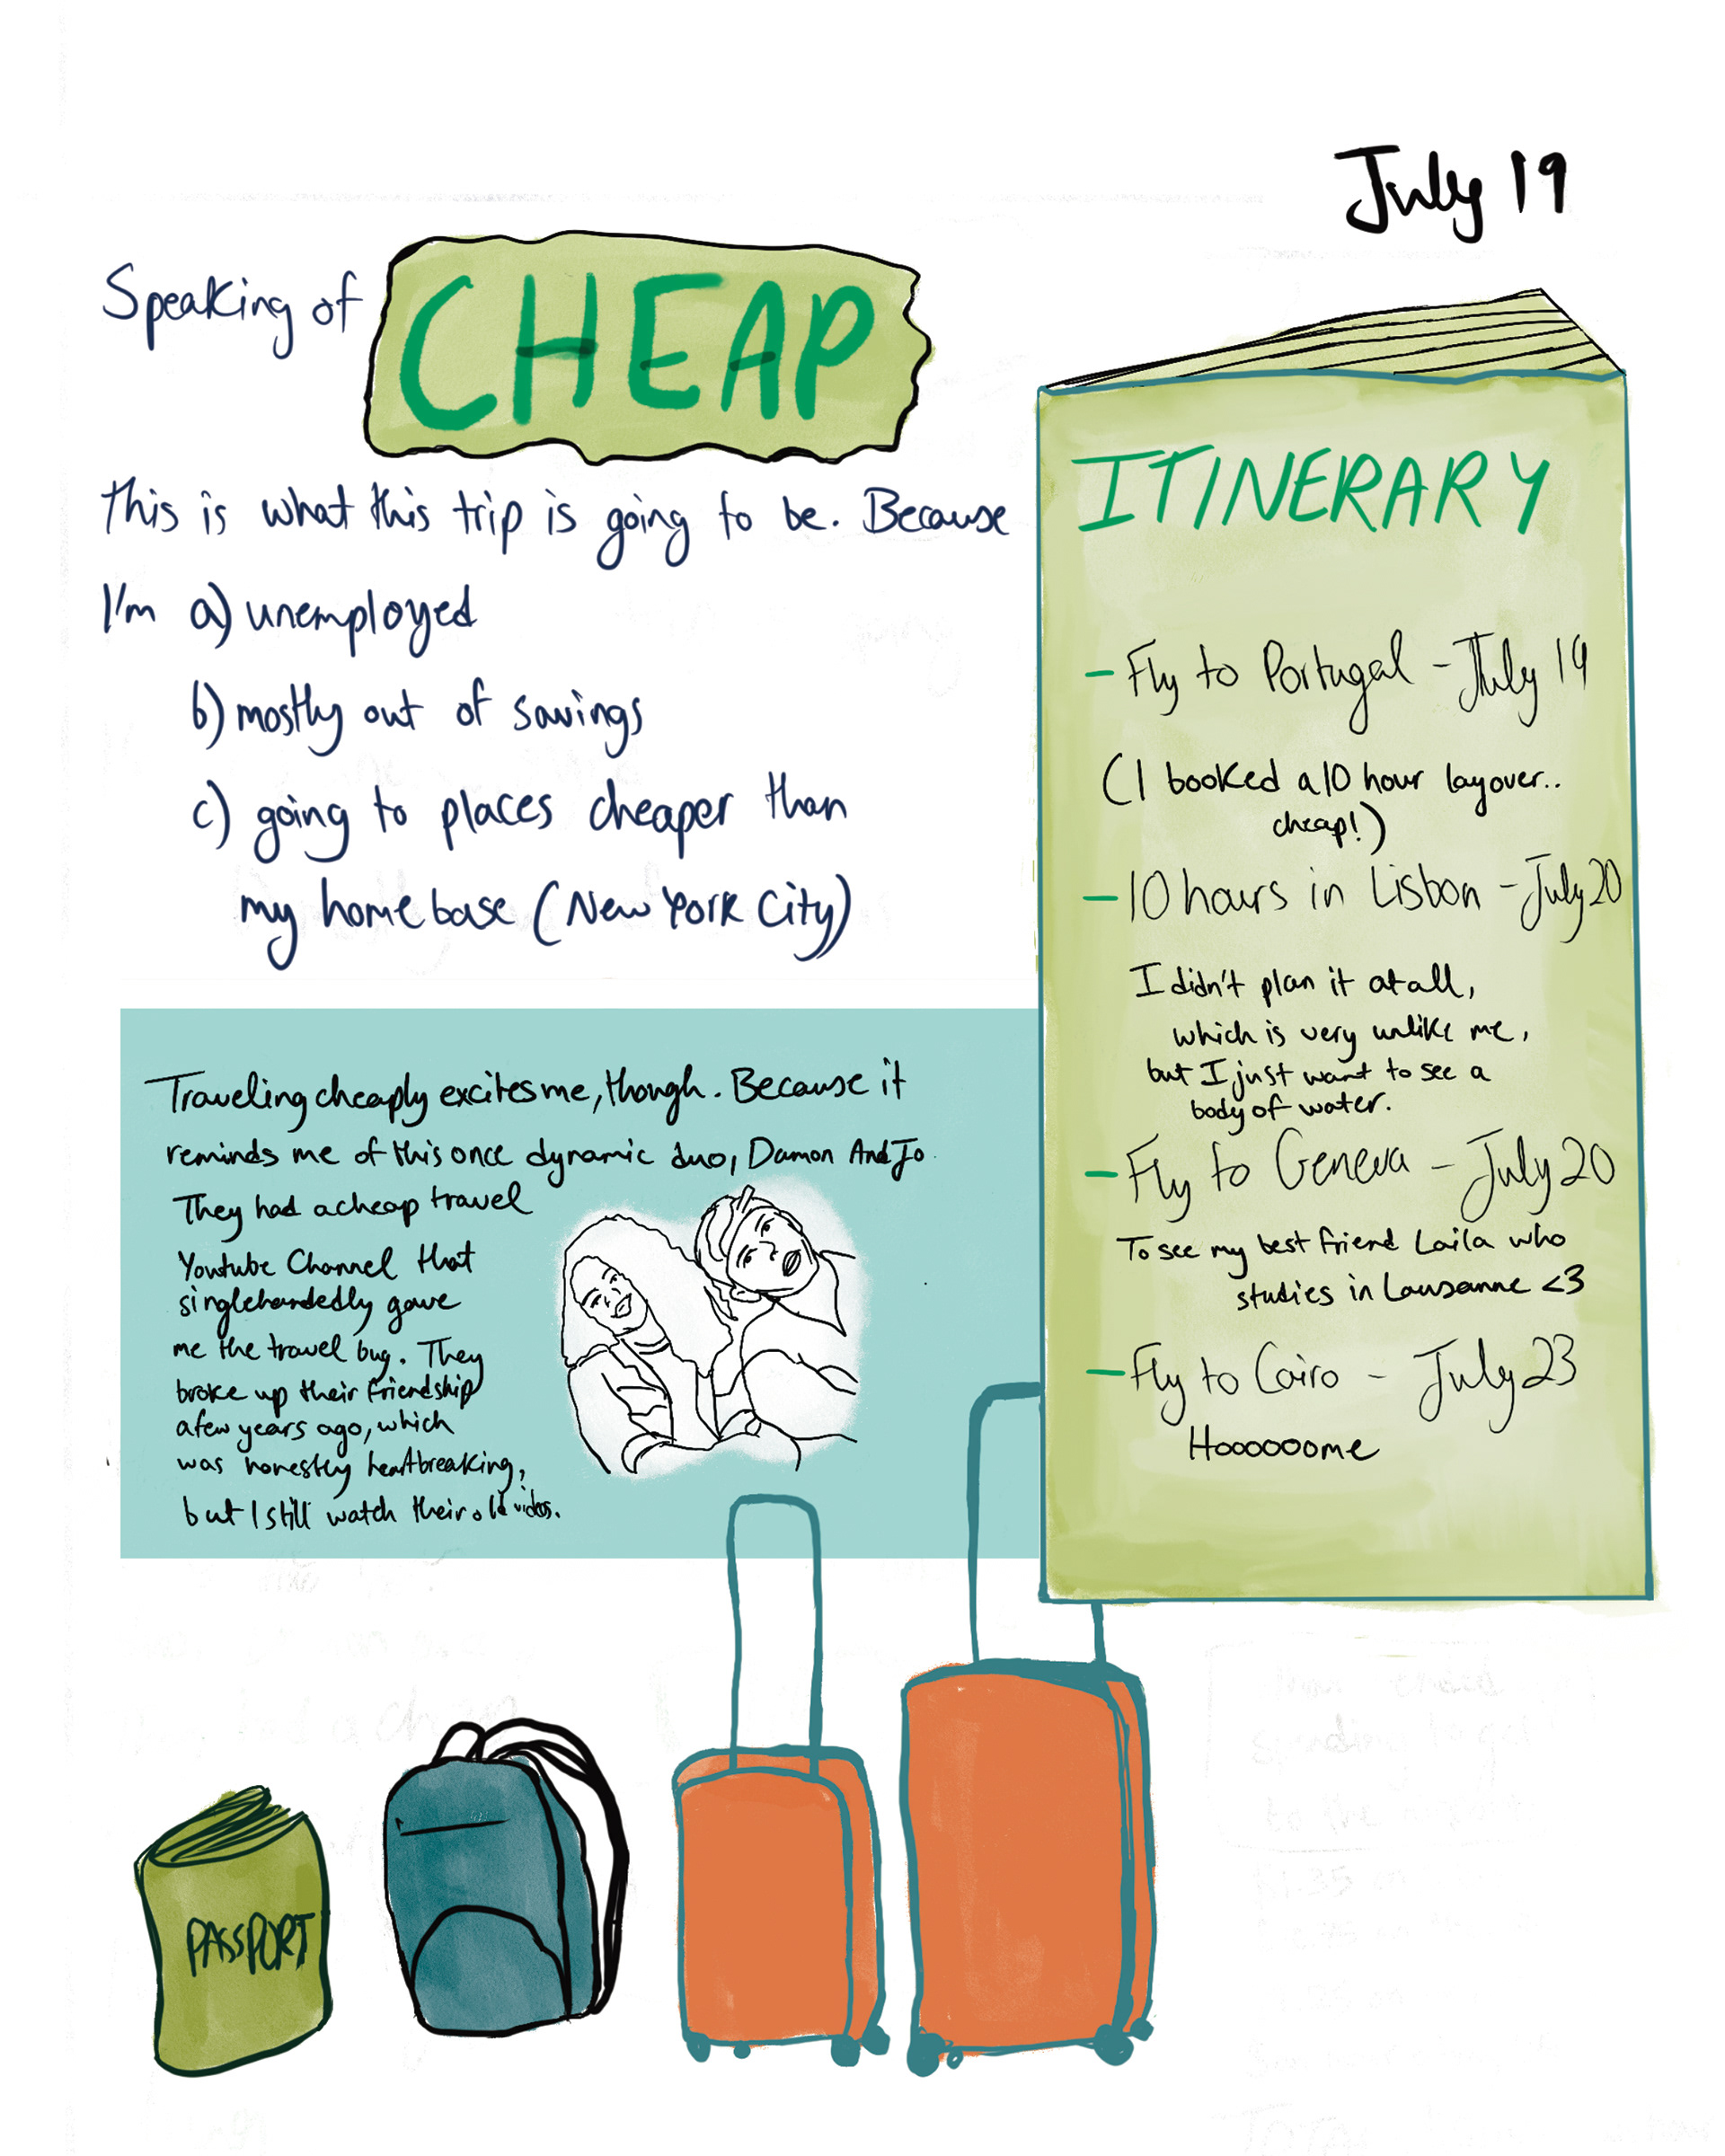 July 19
Speaking of CHEAP
This is what this trip is going to be. Because
I'm a) unemployed
b) mostly out of savings
c) going to places cheaper than
my home base (New York City)
Traveling cheaply excites me, though. Because it
reminds me of this once dynamic duo, Damon And Jo.
They had a cheap travel
Youtube Channel that
singlehandedly gave
me the travel bug. They
broke up their friendship
a few years ago, which
was honestly heartbreaking,
but I still watch their old videos.
ITINERARY
- Fly to Portugal - July 19
(I booked a 10 hour layover..
cheap!)
- 10 hours in Lisbon - July 20
I didn't plan it at all,
which is very unlike me,
but I just want to see a
body of water.
- Fly to Geneva - July 20
To see my best friend Laila who
studies in Lausanne <3
- Fly to Cairo - July 23
Hoooooome
PASSPORT